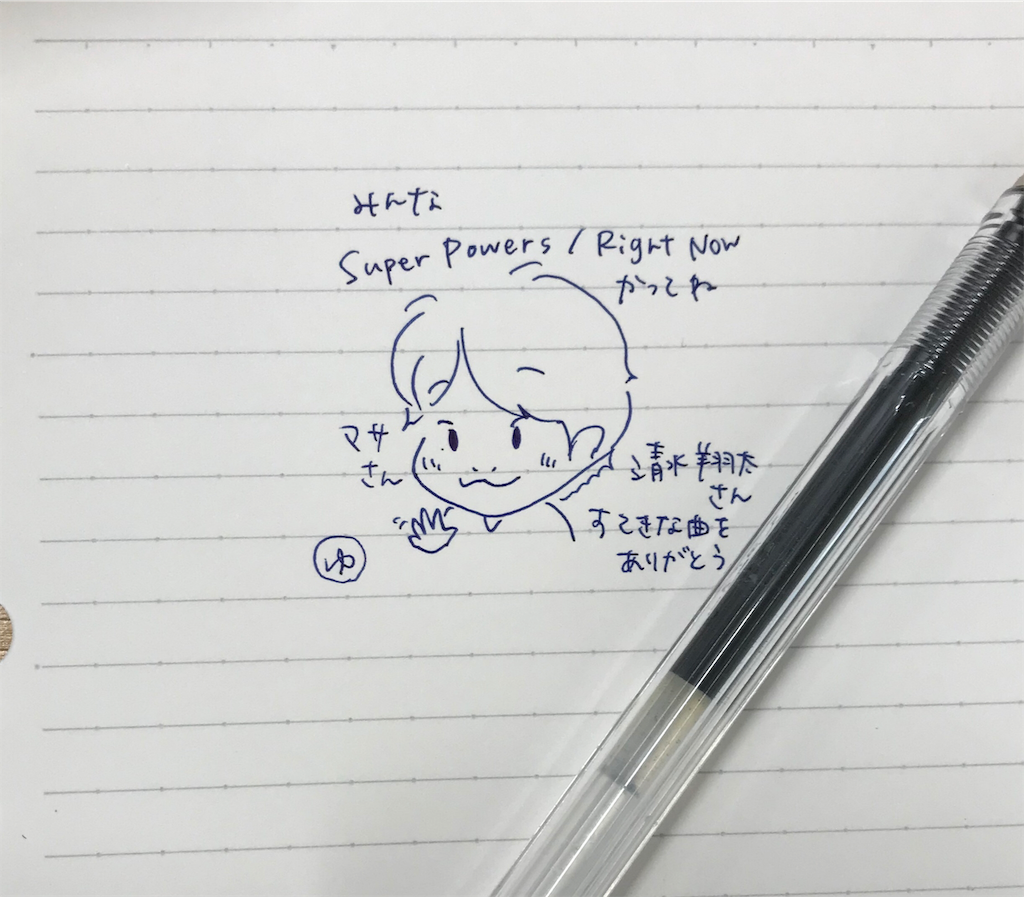 みんな
Super Powers / Right Now
かってね
マサ
さん
清水翔太
さん
すてきな曲を
ありがとう
ゆ